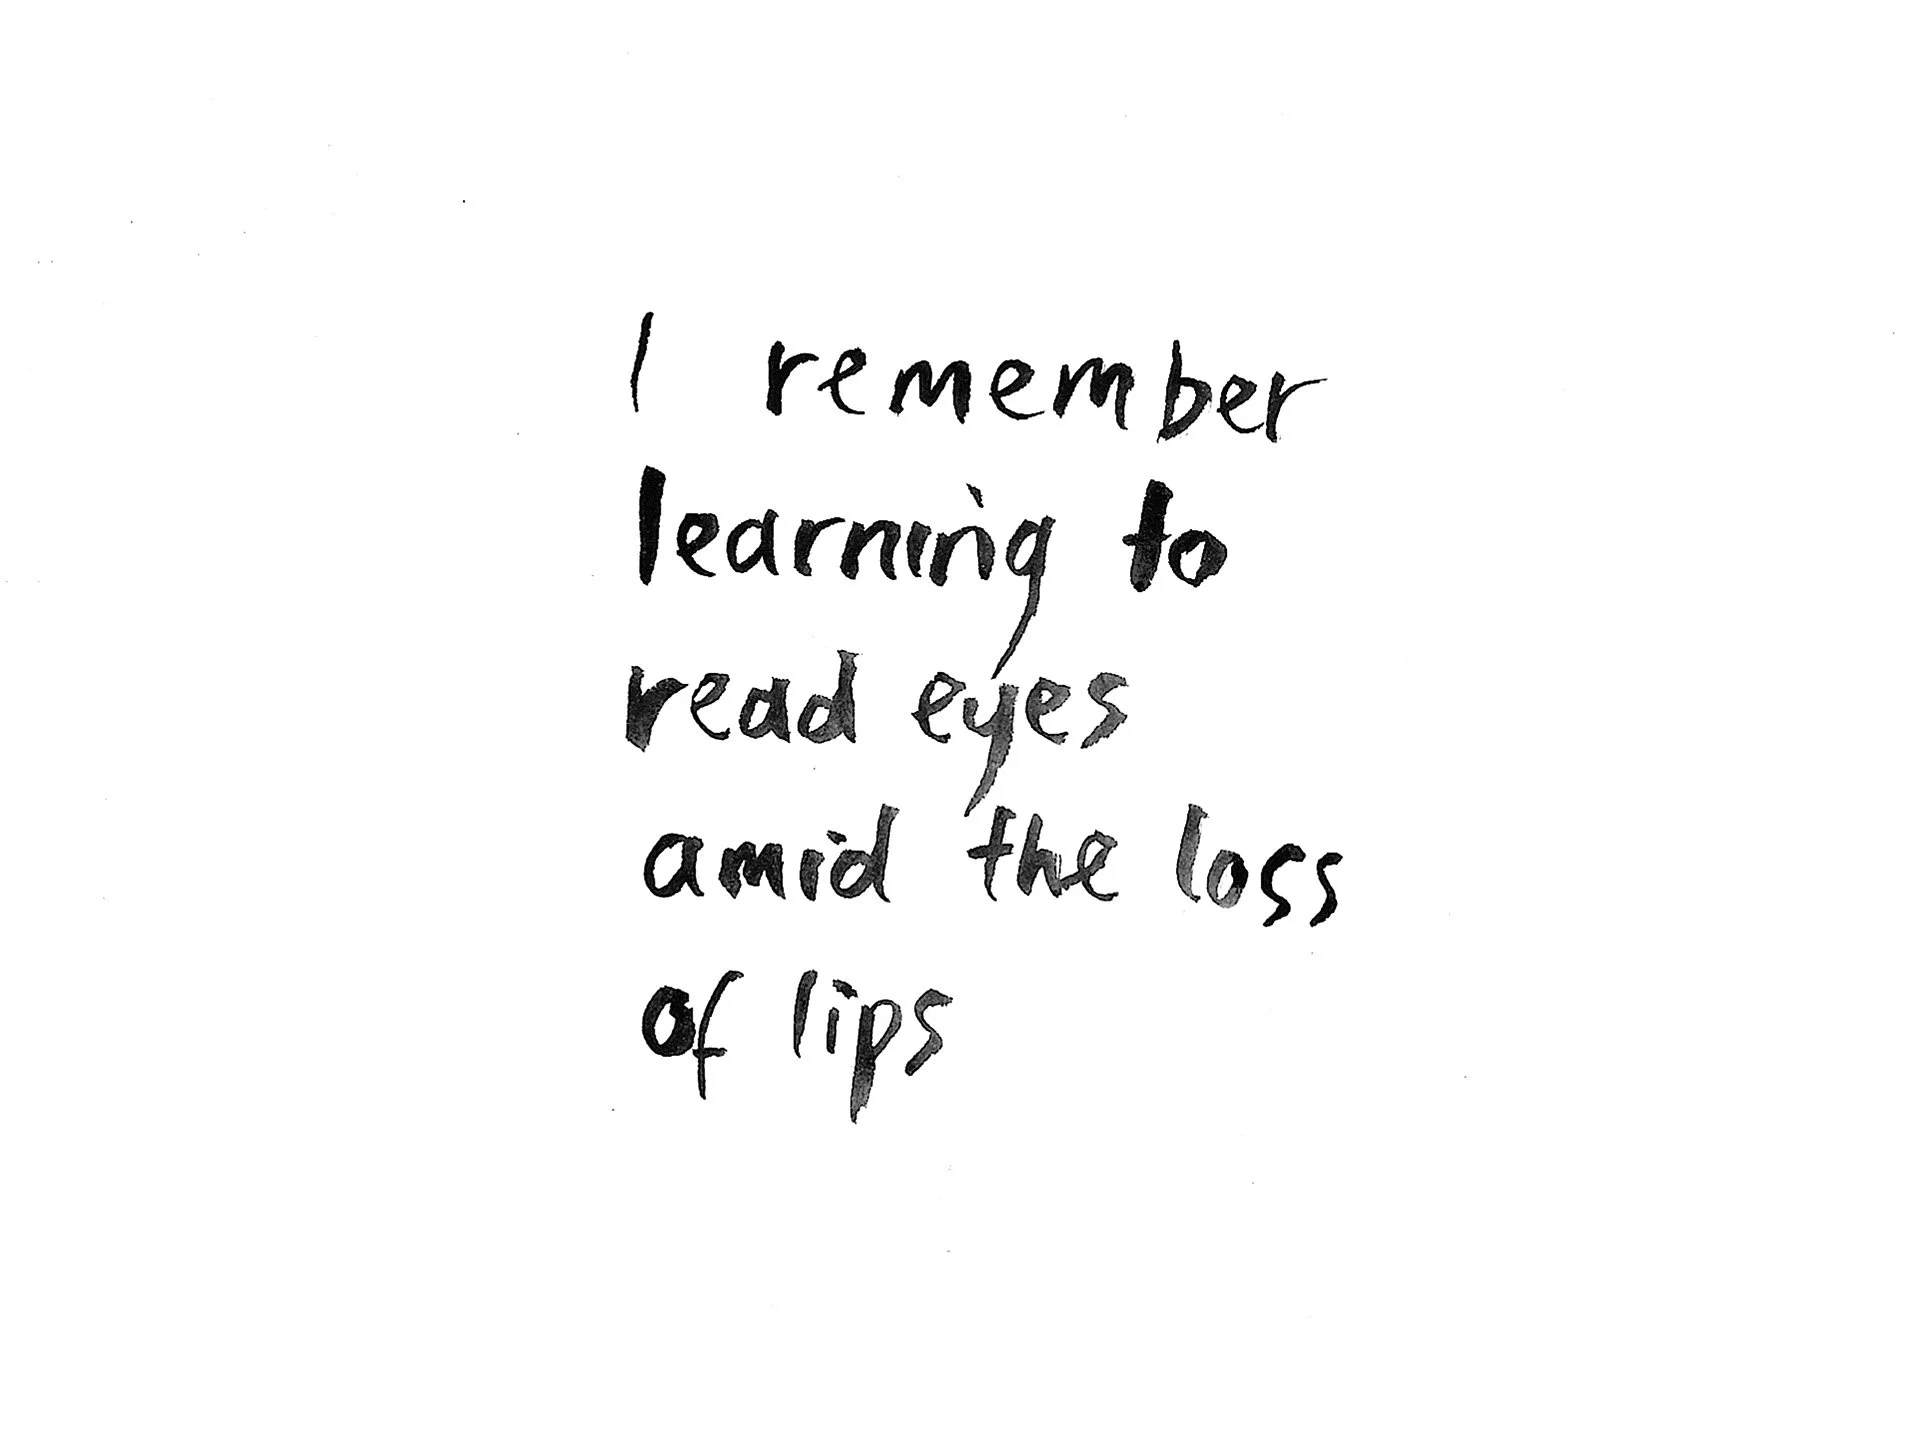 I remember
learning to
read eyes
amid the loss
of lips